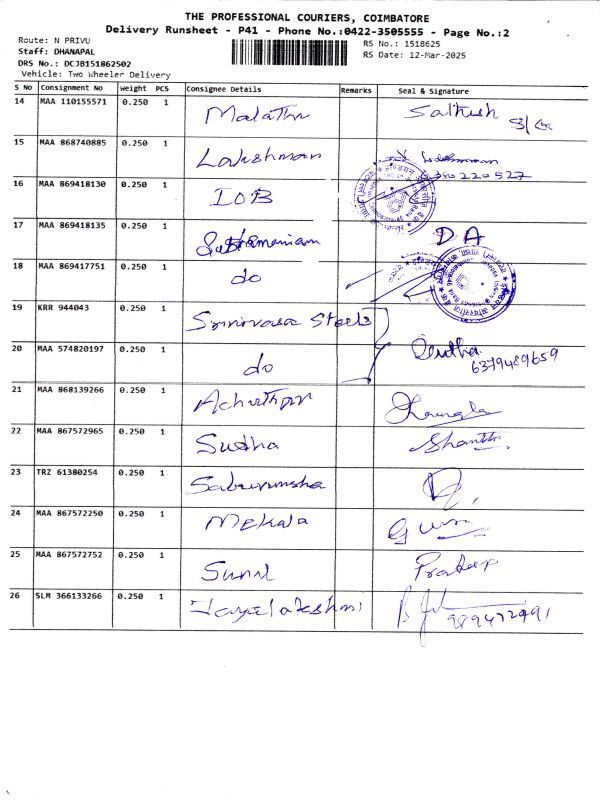 THE PROFESSIONAL COURIERS, COIMBATORE
Delivery Runsheet - P41 - Phone No.:0422-3505555 - Page No.:2
Route: N PRIVU
RS No.: 1518625
Staff: DHANAPAL
RS Date: 12-Mar-2025
DRS No.: DCJB151862502
Vehicle: Two Wheeler Delivery
S No Consignment No Weight PCS Consignee Details Remarks Seal & Signature
14 MAA 110155571 0.250 1 Malathi Sathish
15 MAA 868740885 0.250 1 Lakshman
16 MAA 869418130 0.250 1 IOB
17 MAA 869418135 0.250 1 DA
18 MAA 869417751 0.250 1 do
19 KRR 944043 0.250 1 Srinivasa Steels
20 MAA 574820197 0.250 1 do 6379489659
21 MAA 868139266 0.250 1
22 MAA 867572965 0.250 1 Sudha Shanthi
23 TRZ 61380254 0.250 1
24 MAA 867572250 0.250 1 Mekala
25 MAA 867572752 0.250 1 Sunil Pradeep
26 SLM 366133266 0.250 1 Jayalakshmi